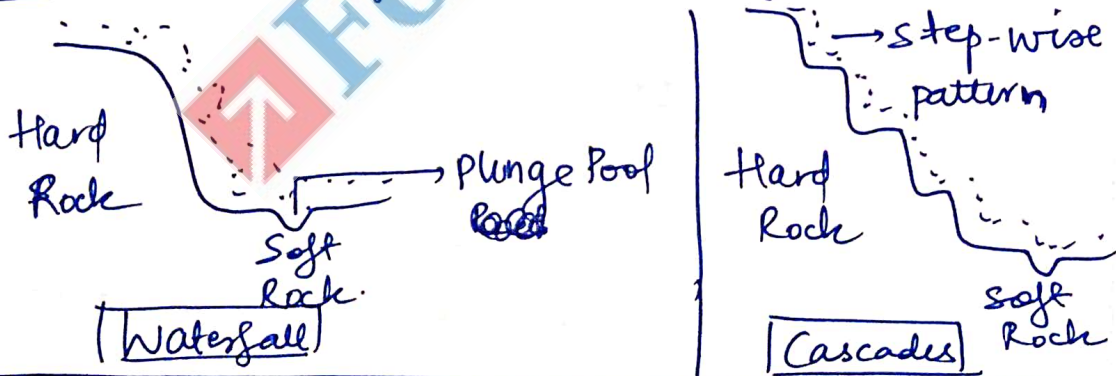 Hard
Rock
Plunge Pool
Soft
Rock.
Waterfall
→ step-wise
pattern
Hard
Rock
Soft
Rock
Cascades